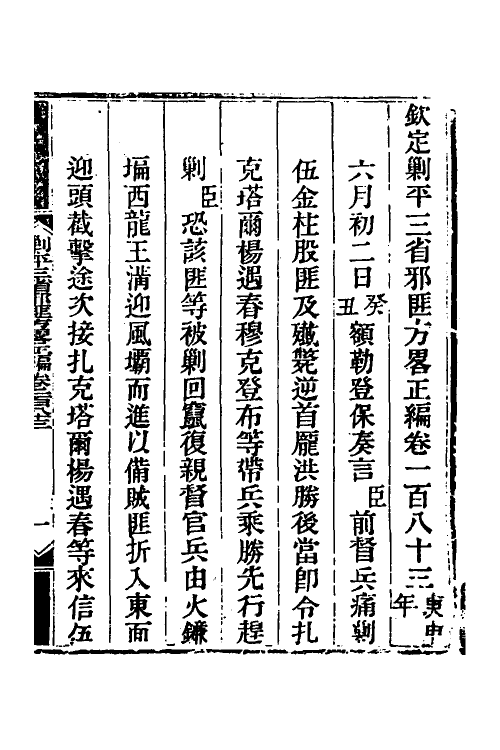 欽定剿平三省邪匪方畧正編卷一百八十三庚申年
六月初二日癸丑額勒登保奏言臣前督兵痛剿
伍金柱股匪及殲斃逆首龐洪勝後當卽令扎
克塔爾楊遇春穆克登布等帶兵乘勝先行趕
剿臣恐該匪等被剿回竄復親督官兵由火鐮
塥西龍王溝迎風壩而進以備賊匪折入東面
迎頭截擊途次接扎克塔爾楊遇春等來信伍
剿平三省邪匪方畧正編卷一百八十三
一